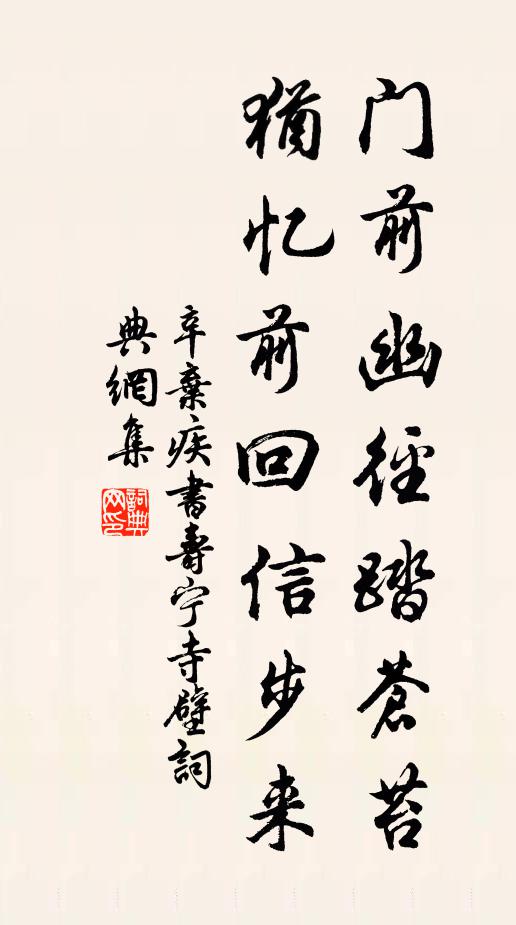 门前幽径踏苍苔
犹忆前回信步来
辛棄疾書壽宁寺壁詞
典網集
詞典
网印